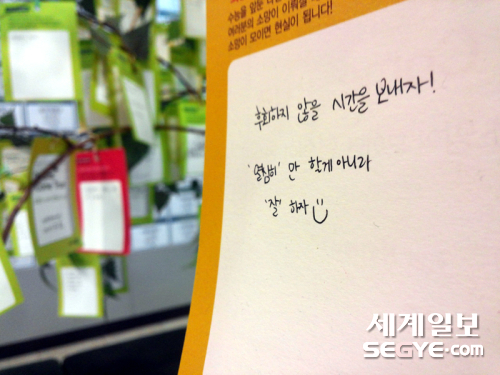 수능을 앞둔
여러분의 소망이 이뤄질
소망이 모이면 현실이 됩니다!
후회하지 않을 시간을 보내자!
'열심히' 만 할게 아니라
'잘' 하자
세계일보
SEGYE.com